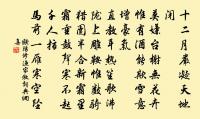 十二月嚴凝天地
閉
莫嫌台榭無花卉
惟有酒能欺雪意
增豪氣
直教耳熱笙歌沸
隴上雕鞍惟數騎
獵圍半合新霜裏
霜重鼓聲寒不起
千人指
馬前一雁寒空墜
歐陽修漁家傲